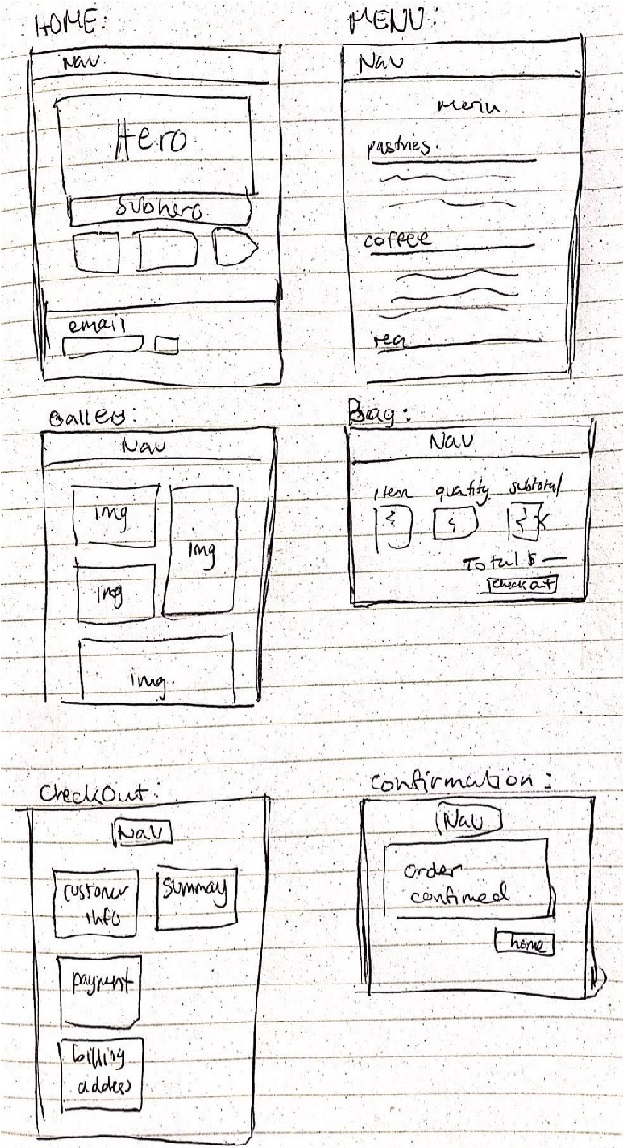 HOME:
Nav
Hero
Subhero
email
MENU:
Nav
Menu
pastries.
coffee
tea
Gallery:
Nav
img
img
img
img
Bag:
Nav
item quantity subtotal
Total $
checkout
CheckOut:
Nav
customer
info
Summay
payment
billing
address
Confirmation:
Nav
order
confirmed
home